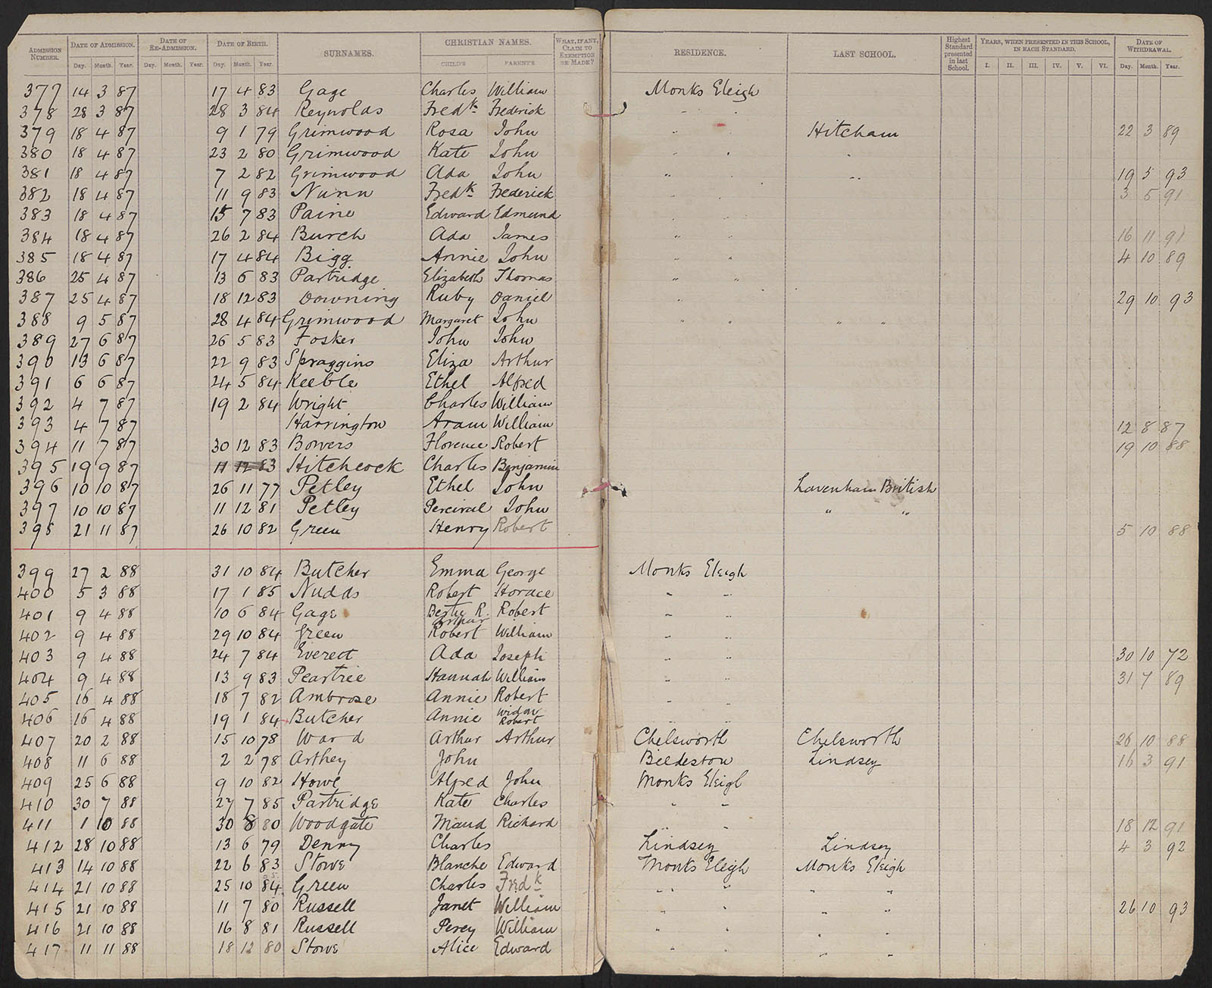 ADMISSION NUMBER. DATE OF ADMISSION. DATE OF RE-ADMISSION. DATE OF BIRTH. SURNAMES. CHRISTIAN NAMES. WHAT, IF ANY, CLAIM TO EXEMPTION IS MADE? RESIDENCE. LAST SCHOOL. Highest Standard presented in last School. YEARS, WHEN PRESENTED IN THIS SCHOOL, IN EACH STANDARD. DATE OF WITHDRAWAL.
Day. Month. Year. Day. Month. Year. Day. Month. Year. CHILD'S PARENT'S I. II. III. IV. V. VI. Day. Month. Year.
377 14 3 87 17 4 83 Gage Charles William Monks Eleigh
378 28 3 87 28 3 84 Reynolds Fredk Frederick " "
379 18 4 87 9 1 79 Grimwood Rosa John " Hitcham 22 3 89
380 18 4 87 23 2 80 Grimwood Kate John " " "
381 18 4 87 7 2 82 Grimwood Ada John " " " 19 5 93
382 18 4 87 11 9 83 Nunn Fredk Frederick " " 3 5 91
383 18 4 87 15 7 83 Paine Edward Edmund " "
384 18 4 87 26 2 84 Burch Ada James " " 16 11 91
385 18 4 87 17 4 84 Bigg Annie John " " 4 10 89
386 25 4 87 13 6 83 Partridge Elizabeth Thomas " "
387 25 4 87 18 12 83 Downing Ruby Daniel " 29 10 93
388 9 5 87 28 4 84 Grimwood Margaret John " " " "
389 27 6 87 26 5 83 Fosker John John
390 13 6 87 22 9 83 Spraggins Eliza Arthur
391 6 6 87 24 5 84 Keeble Ethel Alfred
392 4 7 87 19 2 84 Wright Charles William
393 4 7 87 Harrington Aram William 12 8 87
394 11 7 87 30 12 83 Bowers Florence Robert 19 10 88
395 19 9 87 11 12 83 Hitchcock Charles Benjamin
396 10 10 87 26 11 77 Petley Ethel John Lavenham British
397 10 10 87 11 12 81 Petley Percival John " "
398 21 11 87 26 10 82 Green Henry Robert 5 10 88
399 27 2 88 31 10 84 Butcher Emma George Monks Eleigh
400 5 3 88 17 1 85 Nudds Robert Horace " "
401 9 4 88 10 6 84 Gage R. Robert " "
Arthur
402 9 4 88 29 10 84 Green Robert William " "
403 9 4 88 24 7 84 Everett Ada Joseph " " 30 10 72
404 9 4 88 13 9 83 Peartree Hannah William " " 31 7 89
405 16 4 88 18 7 82 Ambrose Annie Robert " "
406 16 4 88 19 1 84 Butcher Annie Widow Robert " "
407 20 2 88 15 10 78 Ward Arthur Arthur Chelsworth Chelsworth 26 10 88
408 11 6 88 2 2 78 Arthey John Bildeston Lindsey 16 3 91
409 25 6 88 9 10 82 Howe Alfred John Monks Eleigh
410 30 7 88 27 7 85 Partridge Kate Charles " "
411 1 10 88 30 8 80 Woodgate Maud Richard " 18 12 91
412 28 10 88 13 6 79 Denny Charles Lindsey Lindsey 4 3 92
413 14 10 88 22 6 83 Stowe Blanche Edward Monks Eleigh Monks Eleigh
414 21 10 88 25 10 84 Green Charles Fredk " " " "
415 21 10 88 11 7 80 Russell Janet William " " " " 26 10 93
416 21 10 88 16 8 81 Russell Percy William " " " "
417 11 11 88 18 12 80 Stowe Alice Edward " " " "